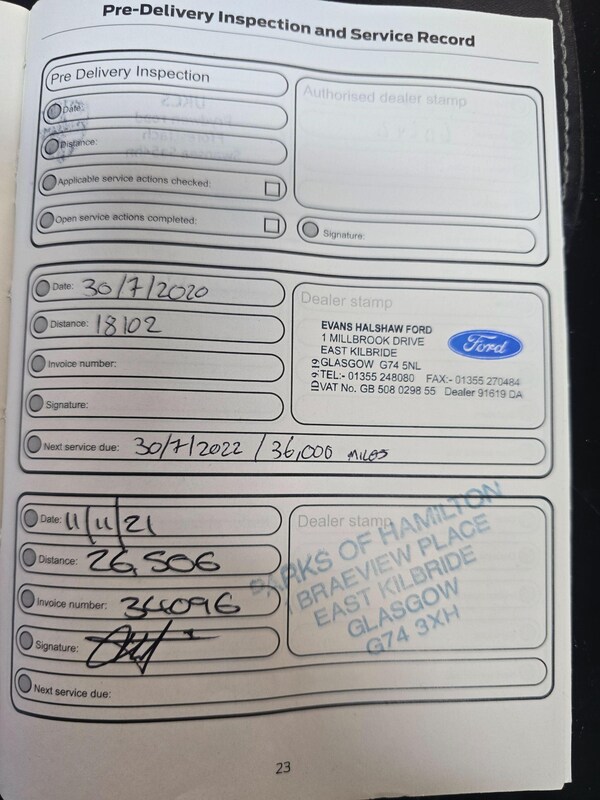 Pre-Delivery Inspection and Service Record
Pre Delivery Inspection
Date:
Distance:
Applicable service actions checked:
Open service actions completed:
Authorised dealer stamp
Signature:
Date: 30/7/2020
Distance: 18102
Invoice number:
Signature:
Next service due: 30/7/2022 / 36,000 MILES
Dealer stamp
EVANS HALSHAW FORD
1 MILLBROOK DRIVE
EAST KILBRIDE
GLASGOW G74 5NL
TEL:- 01355 248080 FAX:- 01355 270484
VAT No. GB 508 0298 55 Dealer 91619 DA
Ford
Date: 11/11/21
Distance: 26,506
Invoice number: 34096
Signature:
Next service due:
Dealer stamp
PARKS OF HAMILTON
1 BRAEVIEW PLACE
EAST KILBRIDE
GLASGOW
G74 3XH
23